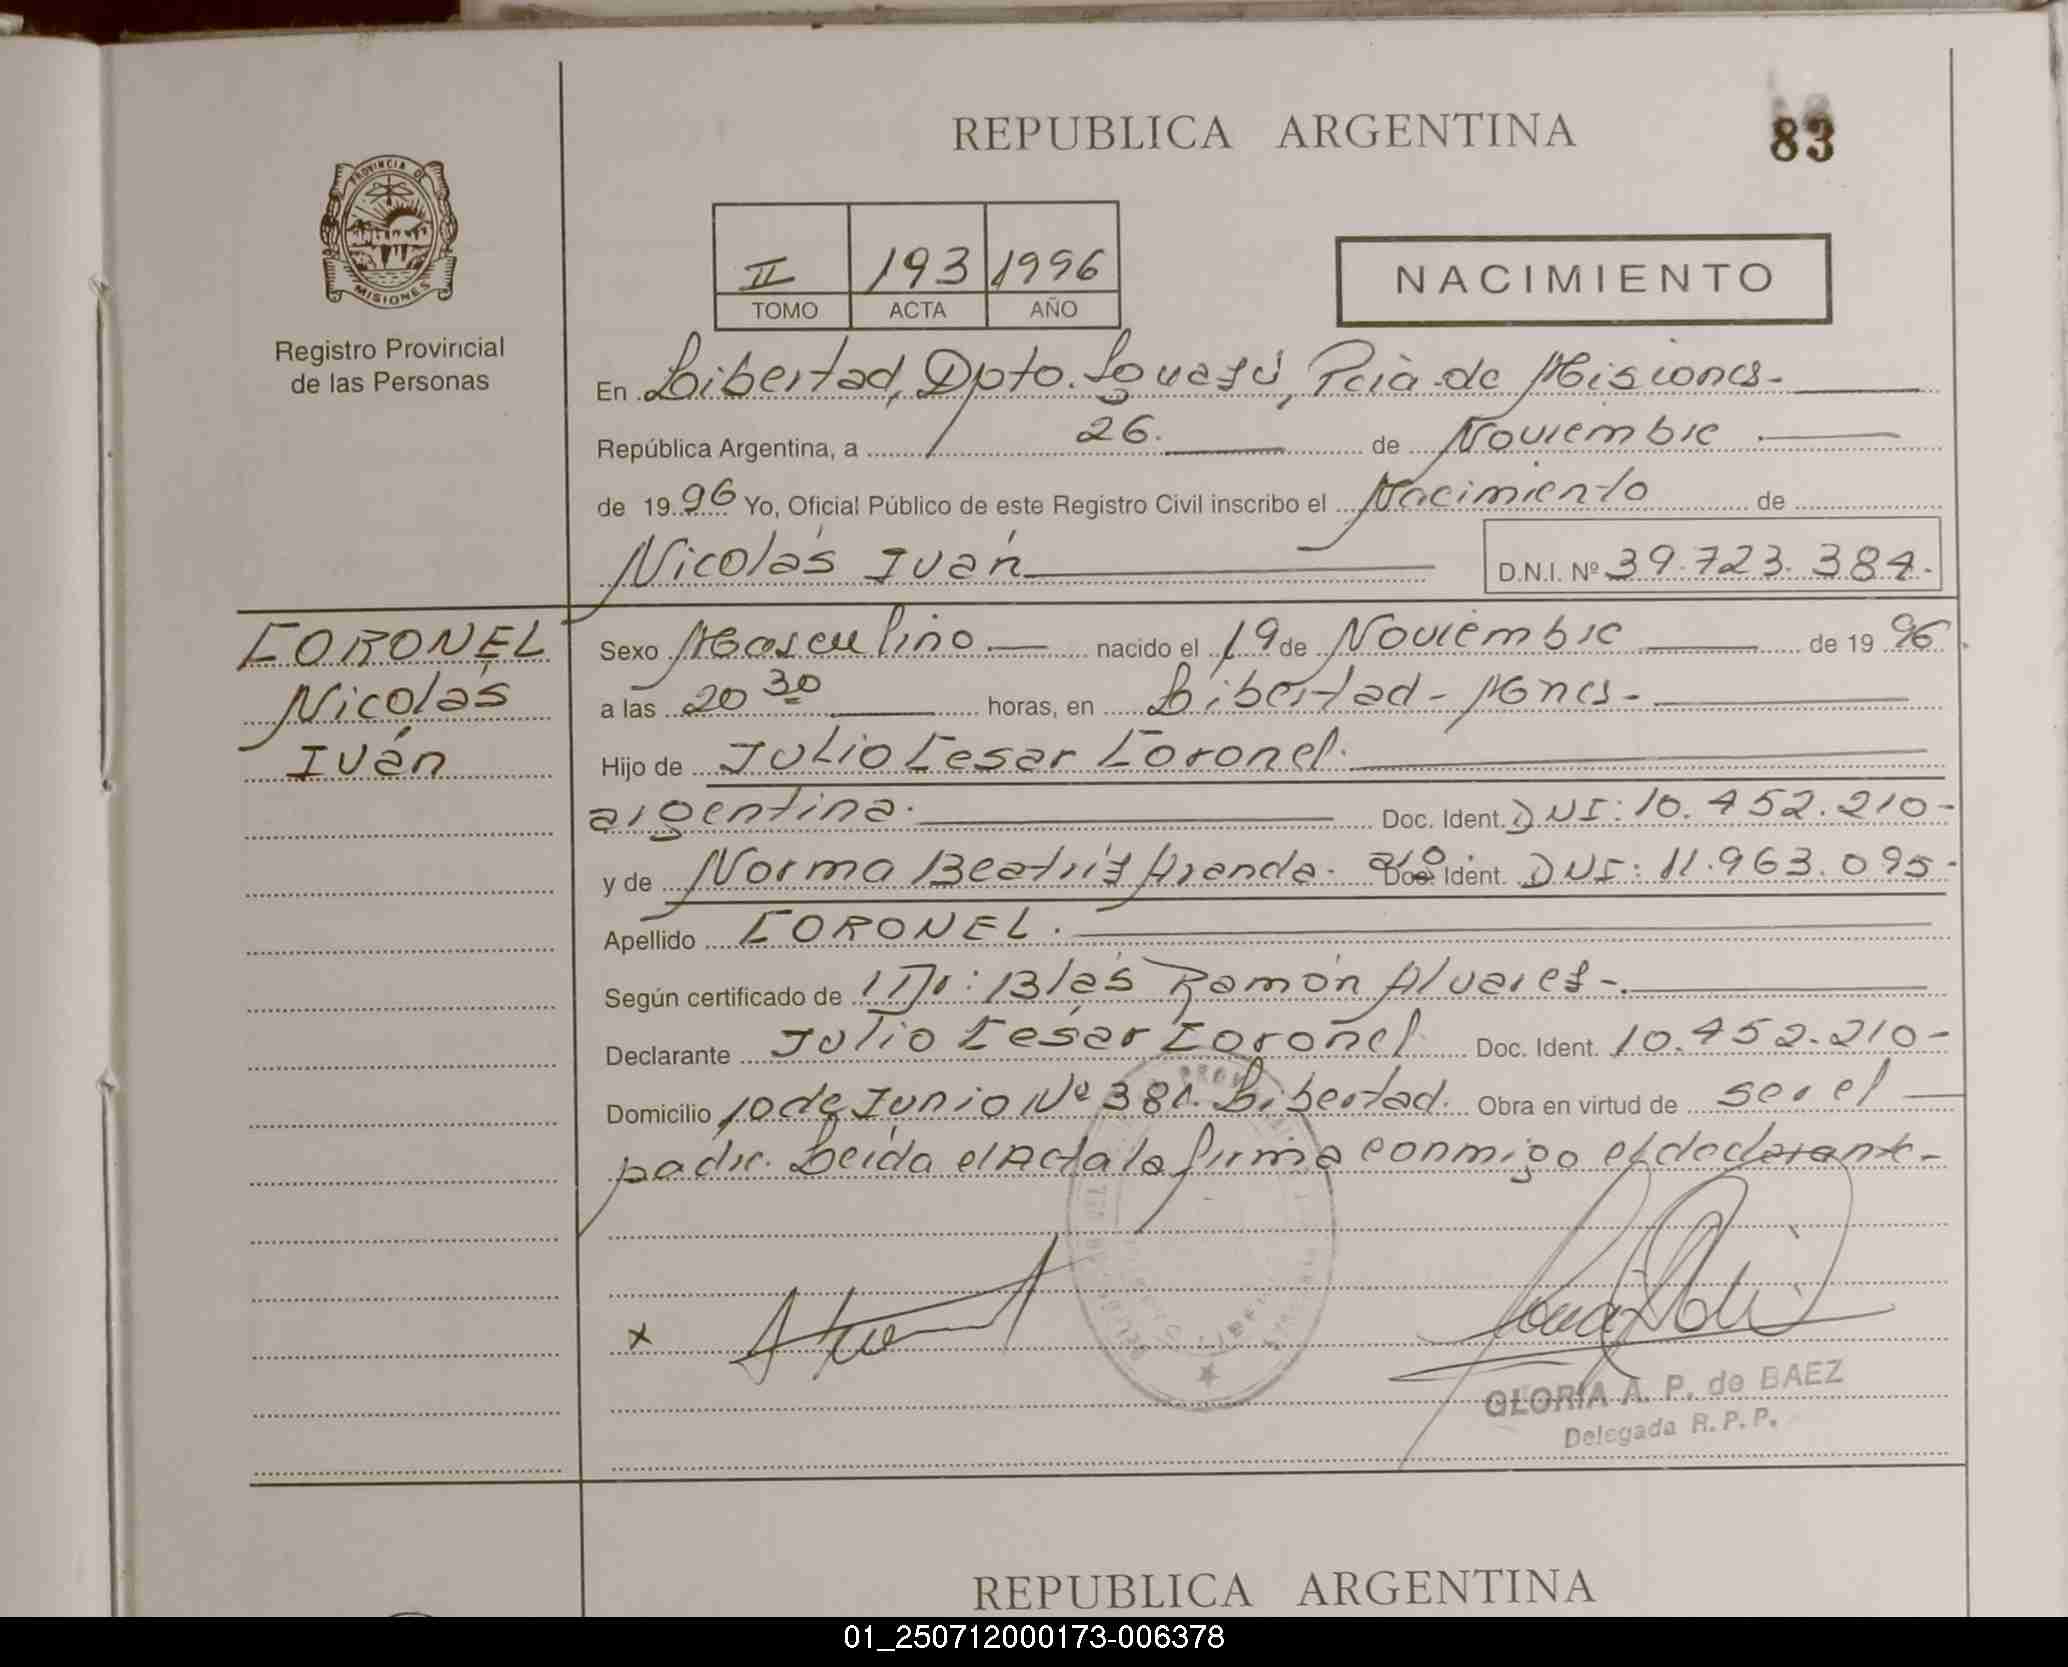 REPUBLICA ARGENTINA
83
PROVINCIA DE
MISIONES
Registro Provincial
de las Personas
II 193 1996
TOMO ACTA AÑO
NACIMIENTO
En Libertad, Dpto. Iguazú, Pcia. de Misiones.
República Argentina, a 26. de Noviembre
de 1996 Yo, Oficial Público de este Registro Civil inscribo el Nacimiento de
Nicolás Iván
D.N.I. Nº 39.723.384.
CORONEL
Nicolás
Iván
Sexo Masculino nacido el 19 de Noviembre de 1996.
a las 20 30 horas, en Libertad - Mnes -
Hijo de Julio Cesar Coronel.
argentina. Doc. Ident. DNI: 10.452.210-
y de Norma Beatriz Aranda. arg Doc. Ident. DNI: 11.963.095-
Apellido CORONEL.
Según certificado de Dr: Blás Ramón Alvarez -.
Declarante Julio Cesar Coronel Doc. Ident. 10.452.210-
Domicilio 10 de Junio Nº 381. Libertad. Obra en virtud de ser el
padre. Leída el Acta la firma conmigo el declarante-
x
GLORIA A. P. de BAEZ
Delegada R. P. P.
REPUBLICA ARGENTINA
01_250712000173-006378